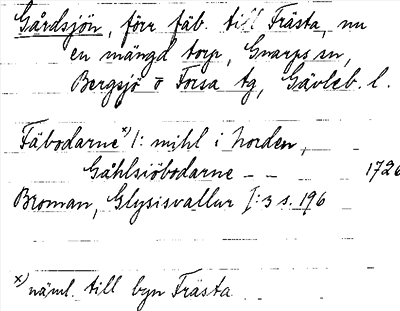 Gårdsjön, förr fäb. till Frästa, nu
en mängd torp, Gnarps sn,
Bergsjö o Forsa tg, Gävleb. l.
Fäbodarne x) /: mihl i Norden,
Gåhlsiöbodarne - - 1726
Broman, Glysisvallur I:3 s. 196
x) näml. till byn Frästa